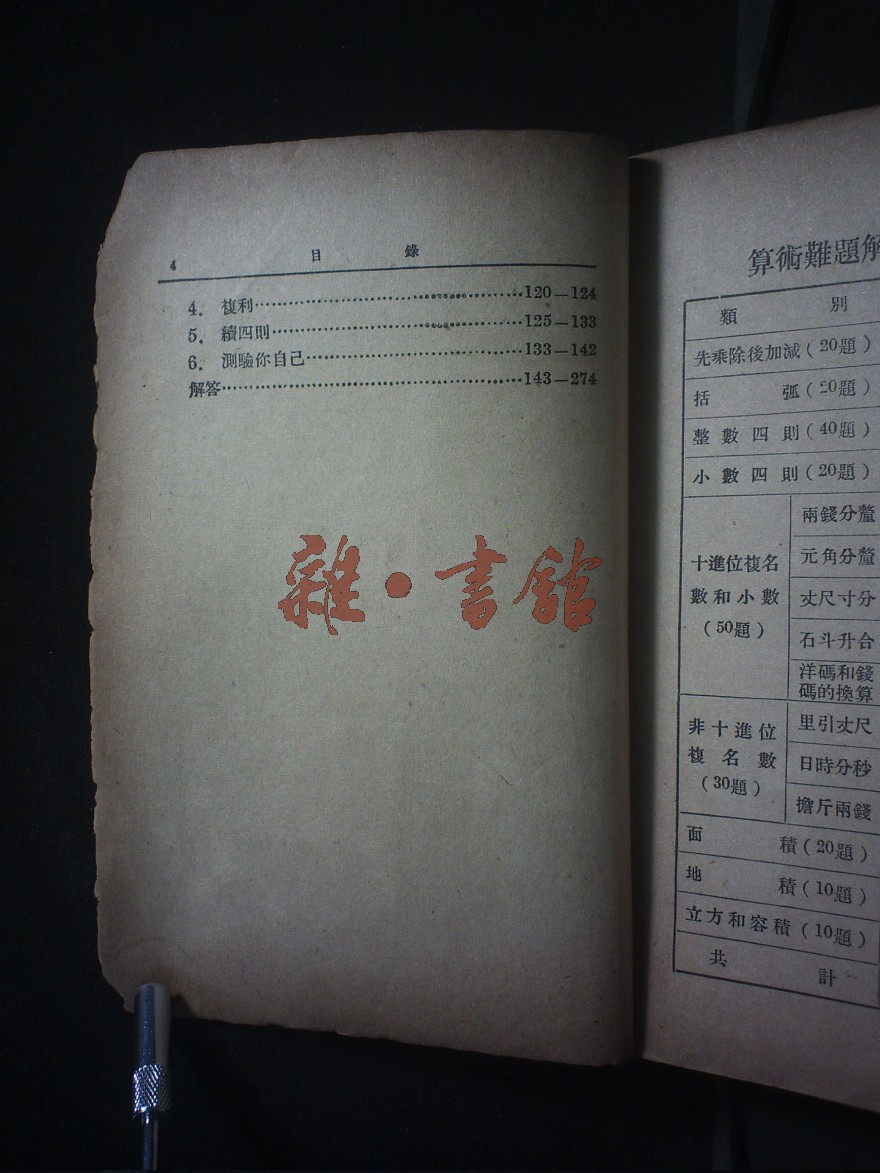 4 目錄
4. 複利……120—124
5. 續四則……125—133
6. 測驗你自己……133—142
解答……143—274
雜·書館
算術難題解
類別
先乘除後加減(20題)
括弧(20題)
整數四則(40題)
小數四則(20題)
十進位複名
數和小數
(50題)
兩錢分釐
元角分釐
丈尺寸分
石斗升合
洋碼和錢
碼的換算
非十進位
複名數
(30題)
里引丈尺
日時分秒
擔斤兩錢
面積(20題)
地積(10題)
立方和容積(10題)
共計